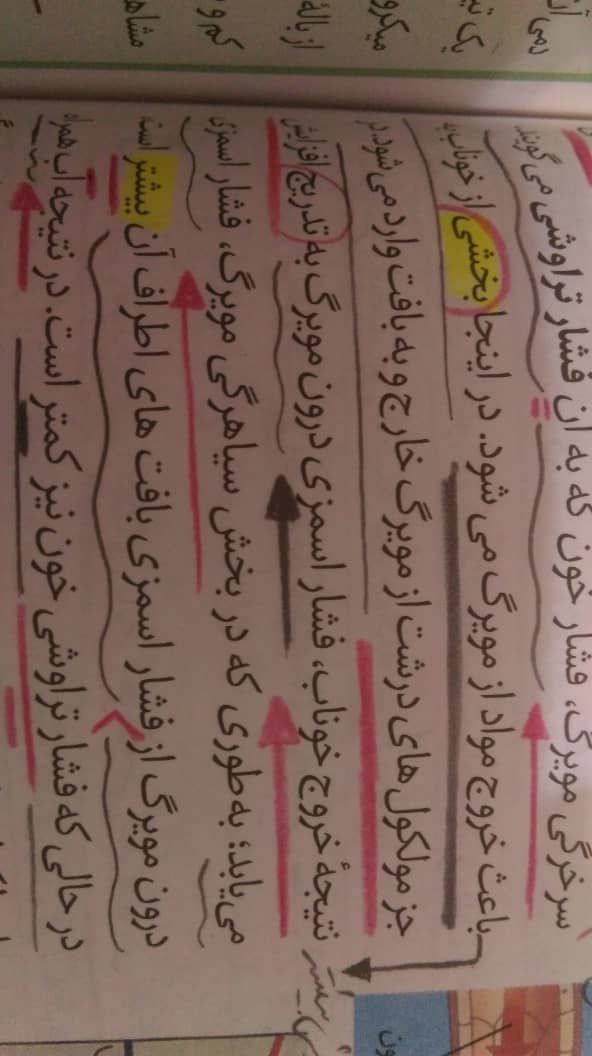 سرخرگی مویرگ، فشار خون که به آن فشار تراوشی می گویند
باعث خروج مواد از مویرگ می شود. در اینجا بخشی از خوناب به
جز مولکول های درشت از مویرگ خارج و به بافت وارد می شود. در
نتیجهٔ خروج خوناب، فشار اسمزی درون مویرگ به تدریج افزایش
می یابد؛ به طوری که در بخش سیاهرگی مویرگ، فشار اسمزی
درون مویرگ از فشار اسمزی بافت های اطراف آن بیشتر است
در حالی که فشار تراوشی خون نیز کمتر است. در نتیجه آب همراه